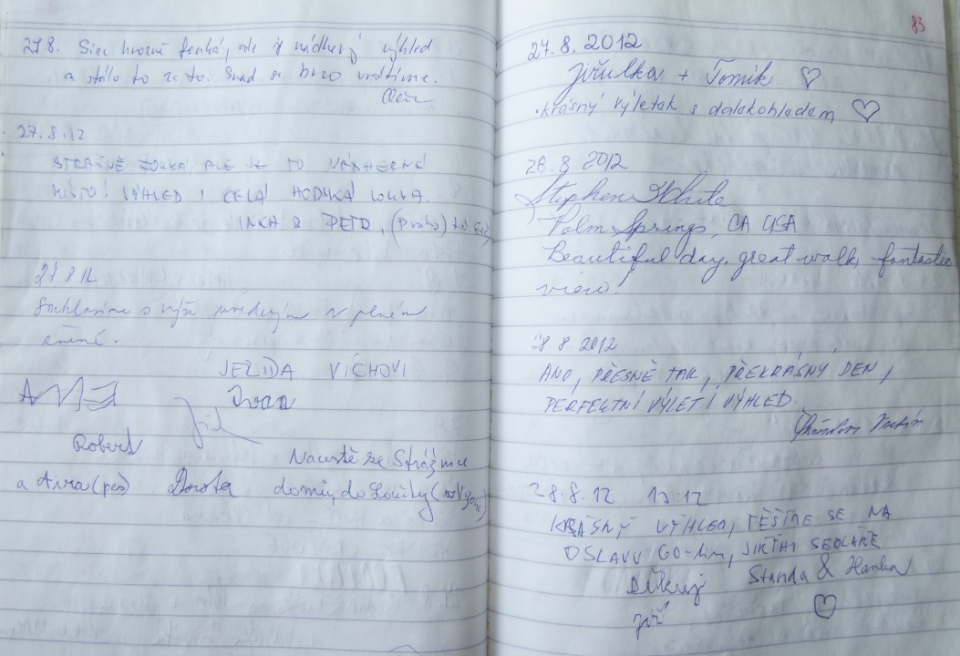 27.8. Sice hrozně fouká, ale je nádherný výhled
a stálo to za to. Snad se brzo vrátíme.
27.8.12
STRAŠNĚ FOUKÁ, ALE JE TO NÁDHERNÉ
MÍSTO! VÝHLED I CELÁ HORSKÁ LOUKA.
INKA & PETR,
27 8 12
Souhlasíme s výše uvedeným v plném
znění.
JEZLIDA VÍCHOVI
Ivan
Robert
Na cestě ze Strážnice
a Aira (pes) Dorota domů, do Loučky
83
27.8.2012
Jiřulka + Tomík ♡
Krásný výletek s dalekohledem ♡
28.8 2012
Stephen White
Palm Springs, CA USA
Beautiful day, great walk, fantastic
view!
28 8 2012
ANO, PŘESNĚ TAK, PŘEKRÁSNÝ DEN,
PERFEKTNÍ VÝLET I VÝHLED
28.8.12 13.12
KRÁSNÝ VÝHLED, TĚŠÍME SE NA
OSLAVU 60-tin, JIŘÍHO SEDLÁŘE
Děkuji Standa & Hanka
Jiří ♡